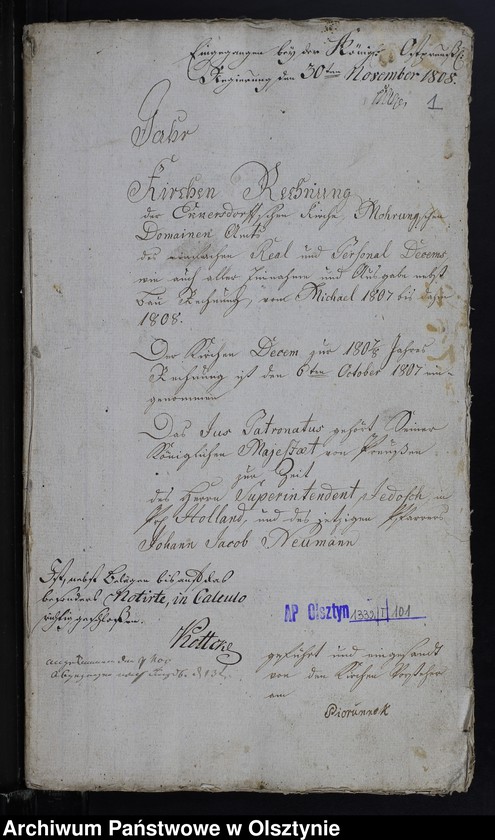 Eingegangen bey der Königl. Ostpreuß.
Regierung, den 30ten November 1808.
1
Jahr
Kirchen Rechnung
der Ennersdorffschen Kirche, Mohrungschen
Domainen Amts
des einfachen Real und Personal Decems,
wie auch aller Einnahme und Ausgabe nebst
Bau Rechnung, vom Michael 1807 bis dahin
1808.
Der Kirchen Decem zur 1807/8 Jahres
Rechnung ist den 6ten October 1807 ein-
genommen
Das Jus Patronatus gehört Seiner
Königlichen Majestæt von Preußen
zur Zeit
des Herrn Superintendent Jedosch, in
Pr. Holland, und des jetzigen Pfarrers
Johann Jacob Neumann
Ist, nebst Belägen bis auf das
besonders Notirte, in Calculo
richtig geschloßen.
Kottcke
AP Olsztyn 1332/I/101
geführt und eingesandt
von den Kirchen Vorsteher
am
Piorunnek
Archiwum Państwowe w Olsztynie